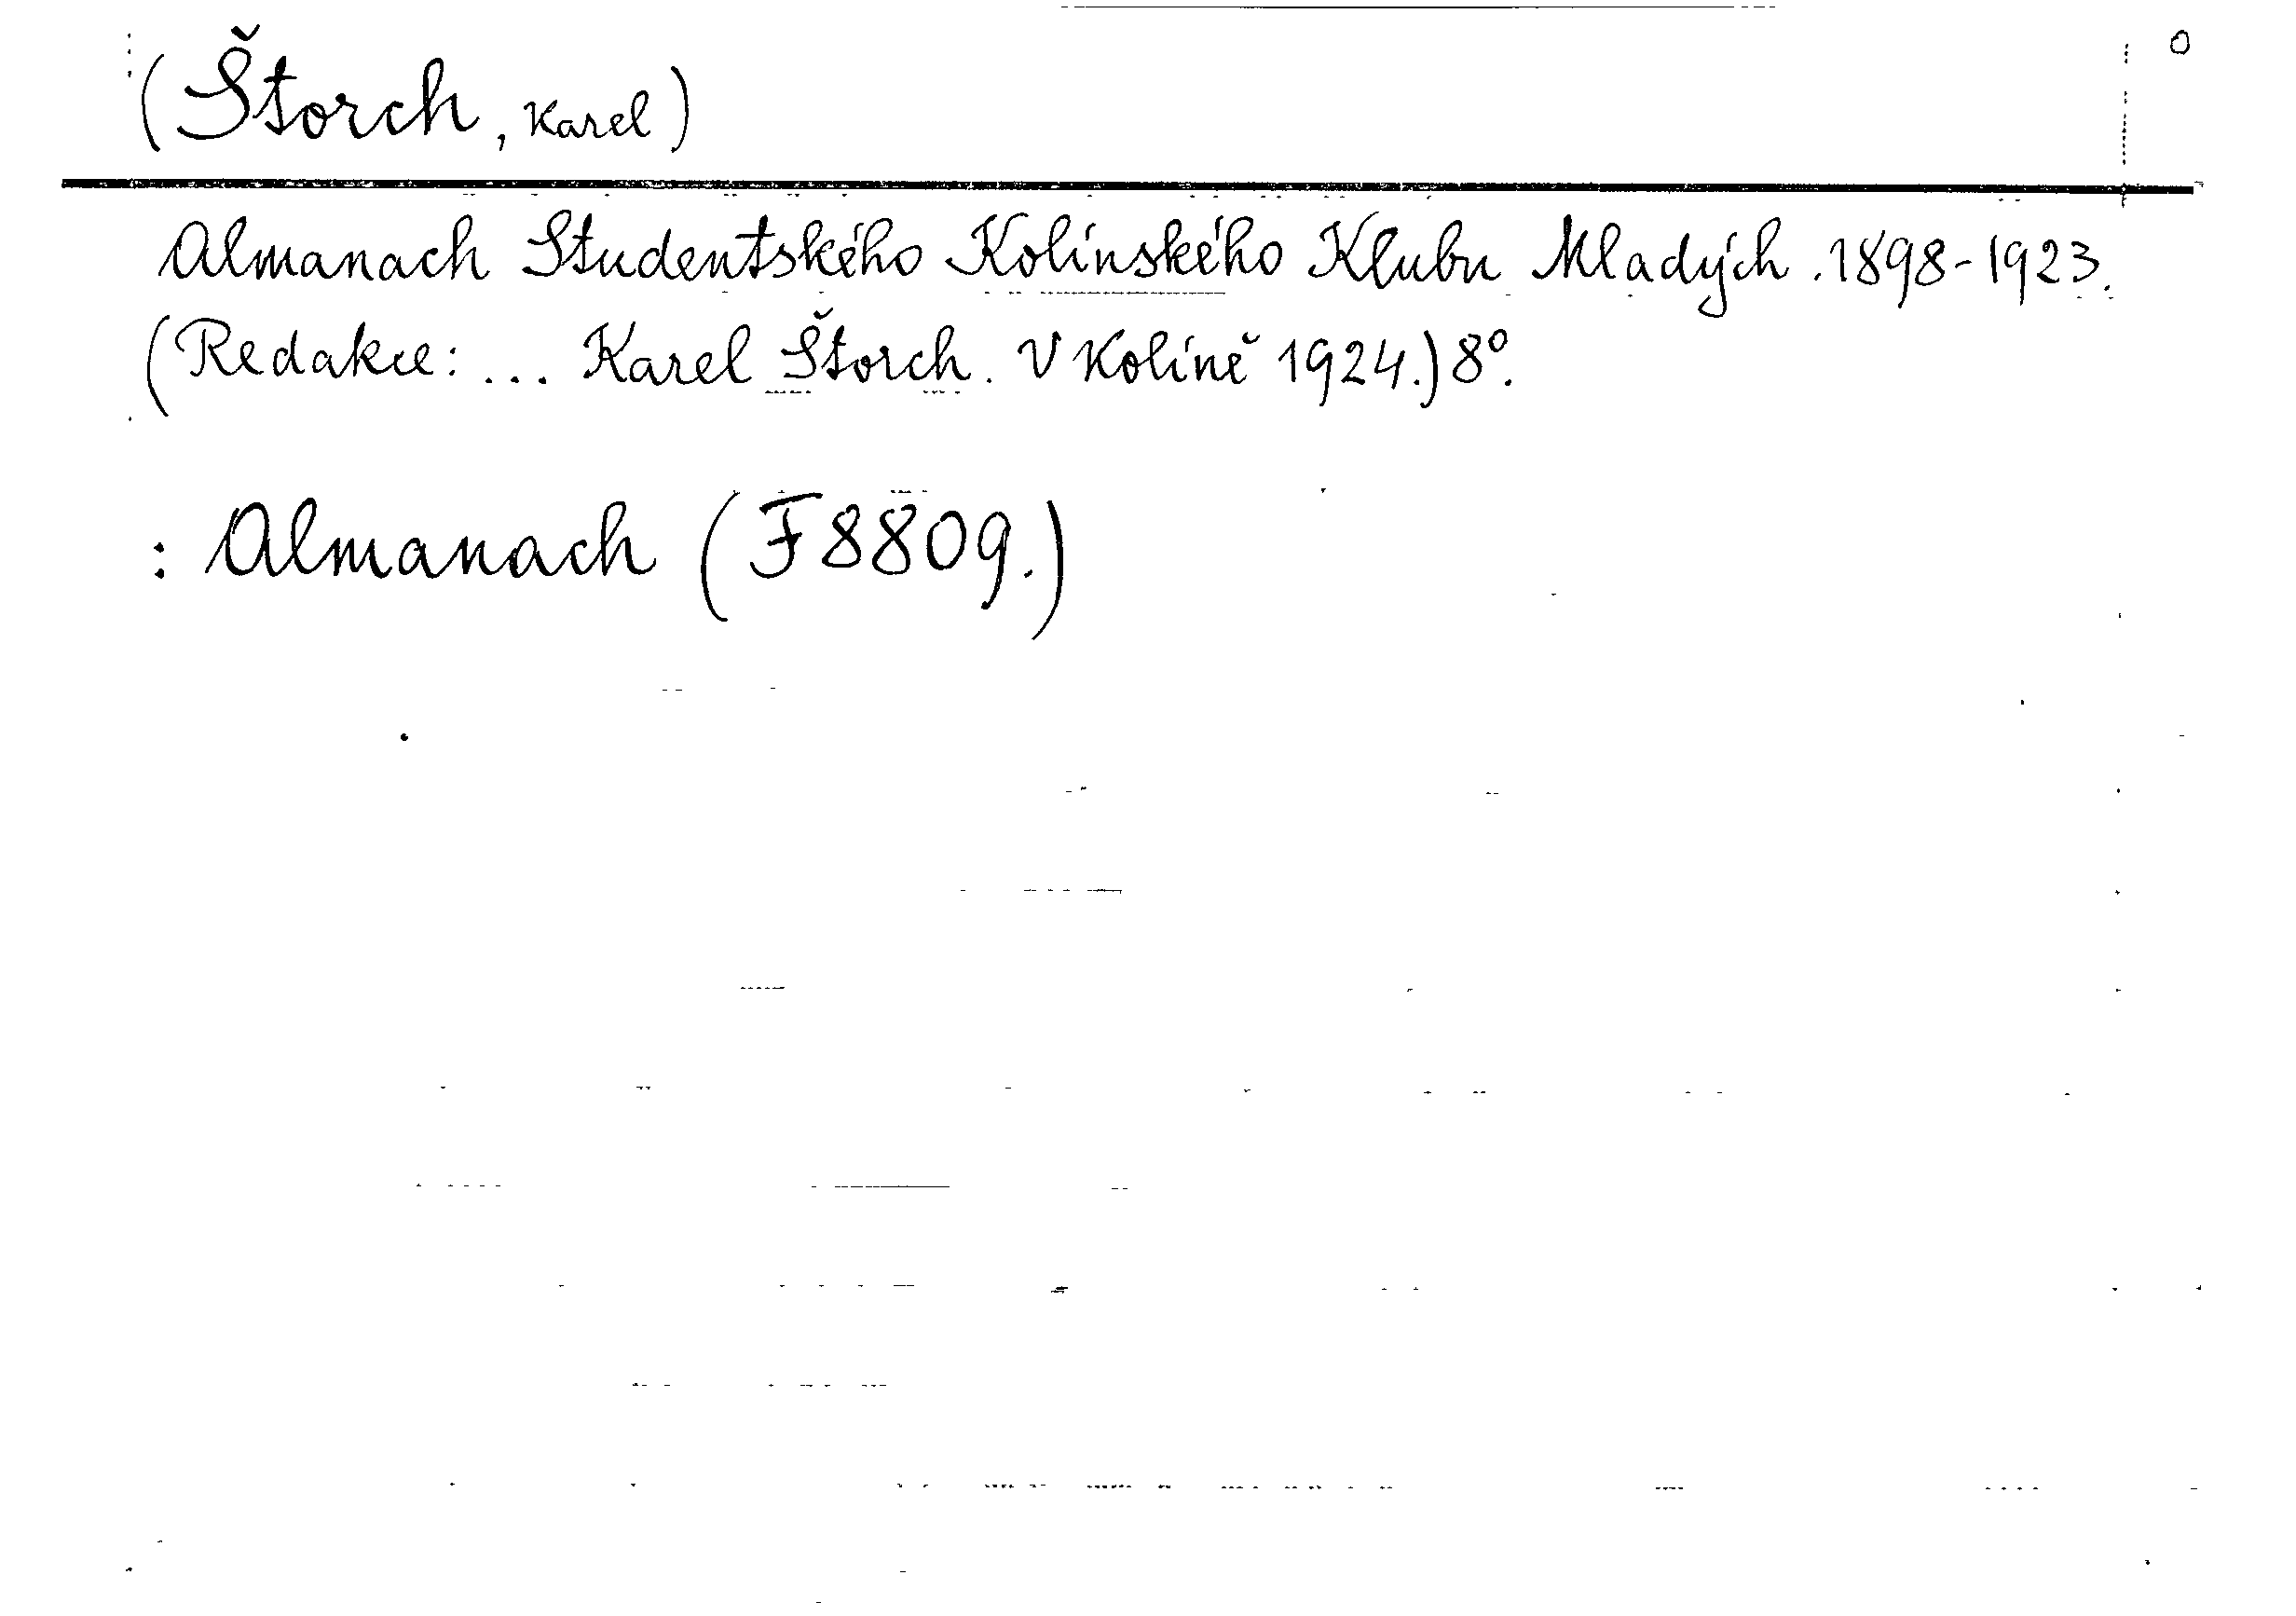 (Štorch, Karel)
Almanach Studentského Kolínského Klubu Mladých. 1898-1923.
(Redakce: ... Karel Štorch. V Kolíně 1924.) 8º.
: Almanach (F8809.)